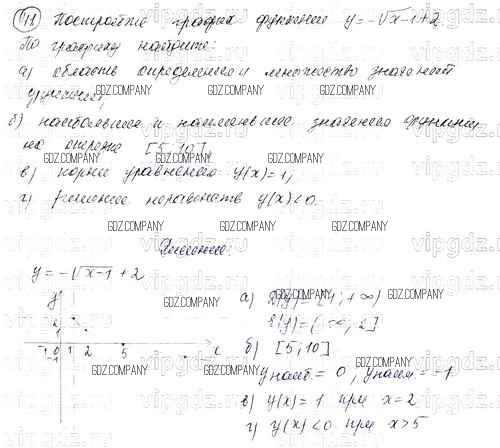 11 Постройте график функции y = -√x-1 + 2
По графику найдите:
а) область определения и множество значений
функции;
б) наибольшее и наименьшее значение функции
на отрезке [5;10]
в) корни уравнения y(x)=1;
г) решение неравенств y(x)<0.
Решение.
y = -√x-1 + 2
y
2
-1 0 1 2 5 x
-1
а) D(y)=[1;+∞)
E(y)=(-∞;2]
б) [5;10]
yнаиб.= 0, yнаим.= -1
в) y(x)=1 при x=2
г) y(x)<0 при x>5
GDZ.COMPANY
vipgdz.ru